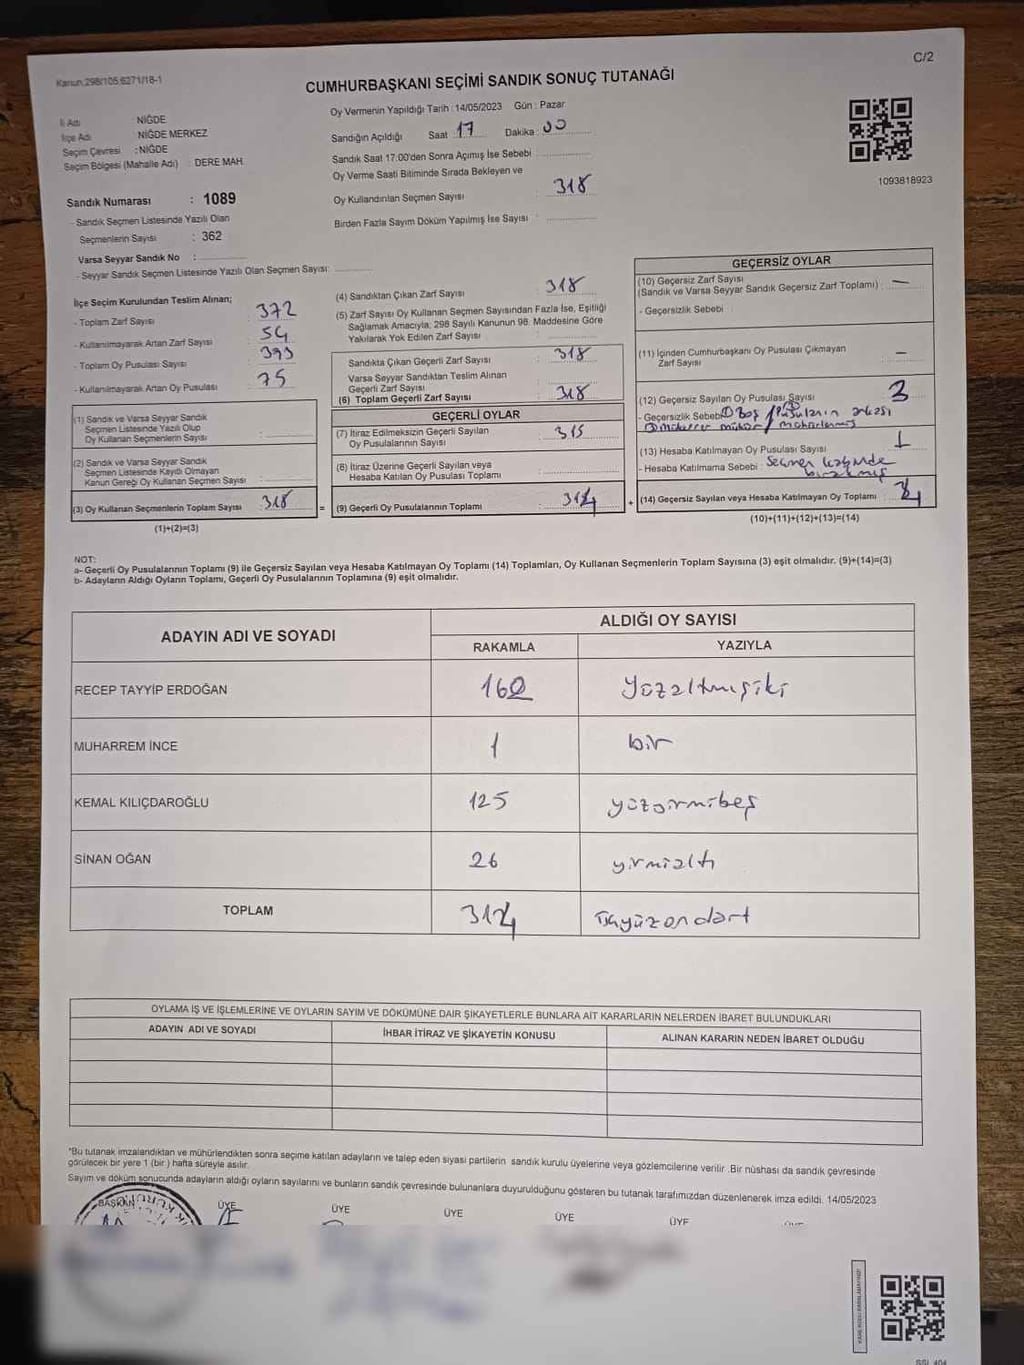 Kanun:298/105,6271/18-1
C/2
CUMHURBAŞKANI SEÇİMİ SANDIK SONUÇ TUTANAĞI
Oy Vermenin Yapıldığı Tarih :14/05/2023 Gün : Pazar
İl Adı : NİĞDE
İlçe Adı : NİĞDE MERKEZ
Seçim Çevresi : NİĞDE
Seçim Bölgesi (Mahalle Adı) : DERE MAH.
Sandığın Açıldığı Saat 17 Dakika : 00
Sandık Saat 17:00'den Sonra Açımış İse Sebebi
Oy Verme Saati Bitiminde Sırada Bekleyen ve
Oy Kullandırılan Seçmen Sayısı : 318
Birden Fazla Sayım Döküm Yapılmış İse Sayısı :
1093818923
Sandık Numarası : 1089
- Sandık Seçmen Listesinde Yazılı Olan
Seçmenlerin Sayısı : 362
Varsa Seyyar Sandık No :
- Seyyar Sandık Seçmen Listesinde Yazılı Olan Seçmen Sayısı:
İlçe Seçim Kurulundan Teslim Alınan;
- Toplam Zarf Sayısı : 372
- Kullanılmayarak Artan Zarf Sayısı : 54
- Toplam Oy Pusulası Sayısı : 393
- Kullanılmayarak Artan Oy Pusulası : 75
(1) Sandık ve Varsa Seyyar Sandık
Seçmen Listesinde Yazılı Olup
Oy Kullanan Seçmenlerin Sayısı :
(2) Sandık ve Varsa Seyyar Sandık
Seçmen Listesinde Kaydı Olmayan
Kanun Gereği Oy Kullanan Seçmen Sayısı :
(3) Oy Kullanan Seçmenlerin Toplam Sayısı : 318
(1)+(2)=(3)
(4) Sandıktan Çıkan Zarf Sayısı : 318
(5) Zarf Sayısı Oy Kullanan Seçmen Sayısından Fazla İse, Eşitliği
Sağlamak Amacıyla; 298 Sayılı Kanunun 98. Maddesine Göre
Yakılarak Yok Edilen Zarf Sayısı :
Sandıkta Çıkan Geçerli Zarf Sayısı : 318
Varsa Seyyar Sandıktan Teslim Alınan
Geçerli Zarf Sayısı
(6) Toplam Geçerli Zarf Sayısı : 318
GEÇERLİ OYLAR
(7) İtiraz Edilmeksizin Geçerli Sayılan
Oy Pusulalarının Sayısı : 315
(8) İtiraz Üzerine Geçerli Sayılan veya
Hesaba Katılan Oy Pusulası Toplamı :
(9) Geçerli Oy Pusulalarının Toplamı : 314
=
+
GEÇERSİZ OYLAR
(10) Geçersiz Zarf Sayısı
(Sandık ve Varsa Seyyar Sandık Geçersiz Zarf Toplamı) : —
- Geçersizlik Sebebi :
(11) İçinden Cumhurbaşkanı Oy Pusulası Çıkmayan
Zarf Sayısı : —
(12) Geçersiz Sayılan Oy Pusulası Sayısı : 3
- Geçersizlik Sebebi Boş / Pusulanın arkası
mühür / mühürlenmiş
(13) Hesaba Katılmayan Oy Pusulası Sayısı : 1
- Hesaba Katılmama Sebebi : Seçmen
(14) Geçersiz Sayılan veya Hesaba Katılmayan Oy Toplamı : 4
(10)+(11)+(12)+(13)=(14)
NOT:
a- Geçerli Oy Pusulalarının Toplamı (9) ile Geçersiz Sayılan veya Hesaba Katılmayan Oy Toplamı (14) Toplamları, Oy Kullanan Seçmenlerin Toplam Sayısına (3) eşit olmalıdır. (9)+(14)=(3)
b- Adayların Aldığı Oyların Toplamı, Geçerli Oy Pusulalarının Toplamına (9) eşit olmalıdır.
ADAYIN ADI VE SOYADI
ALDIĞI OY SAYISI
RAKAMLA YAZIYLA
RECEP TAYYİP ERDOĞAN 162 yüzaltmışiki
MUHARREM İNCE 1 bir
KEMAL KILIÇDAROĞLU 125 yüzyirmibeş
SİNAN OĞAN 26 yirmialtı
TOPLAM 314 üçyüzondört
OYLAMA İŞ VE İŞLEMLERİNE VE OYLARIN SAYIM VE DÖKÜMÜNE DAİR ŞİKAYETLERLE BUNLARA AİT KARARLARIN NELERDEN İBARET BULUNDUKLARI
ADAYIN ADI VE SOYADI İHBAR İTİRAZ VE ŞİKAYETİN KONUSU ALINAN KARARIN NEDEN İBARET OLDUĞU
*Bu tutanak imzalandıktan ve mühürlendikten sonra seçime katılan adayların ve talep eden siyasi partilerin sandık kurulu üyelerine veya gözlemcilerine verilir .Bir nüshası da sandık çevresinde
görülecek bir yere 1 (bir ) hafta süreyle asılır.
Sayım ve döküm sonucunda adayların aldığı oyların sayılarını ve bunların sandık çevresinde bulunanlara duyurulduğunu gösteren bu tutanak tarafımızdan düzenlenerek imza edildi. 14/05/2023
BAŞKAN ÜYE ÜYE ÜYE ÜYE ÜYE